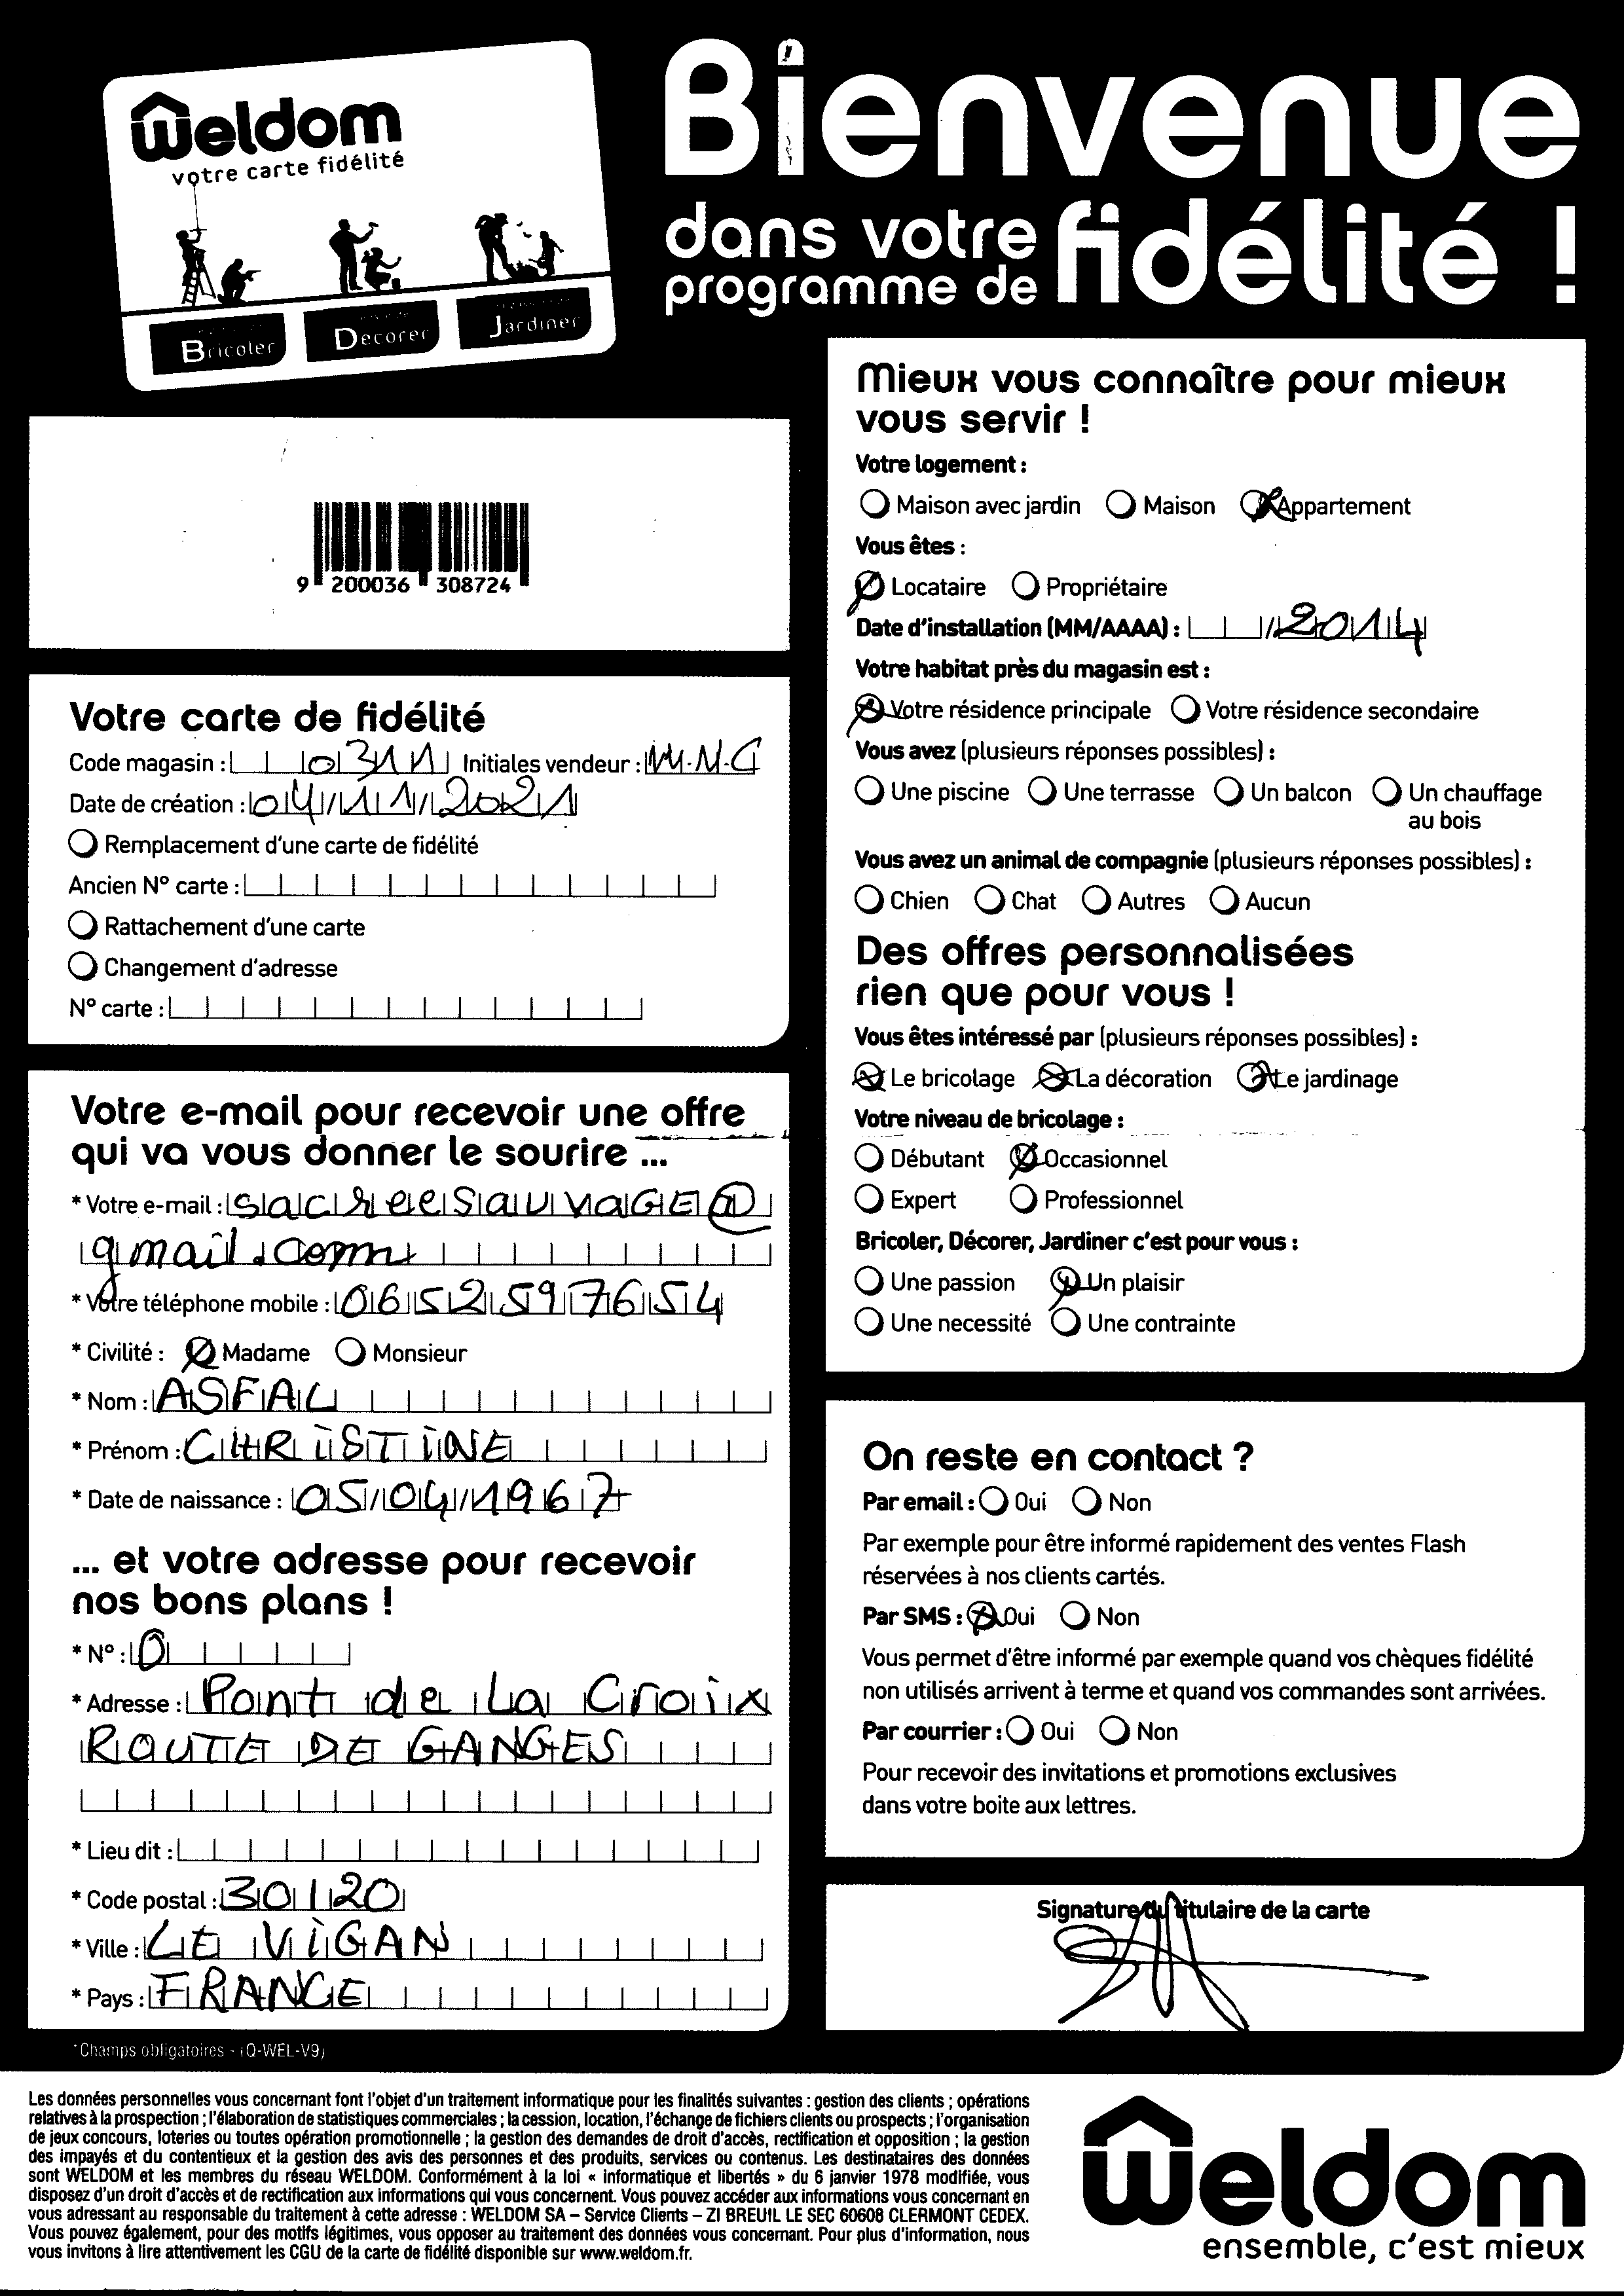 Weldom
votre carte fidélité
Bricoler
Décorer
Jardiner
Bienvenue
dans votre
programme de fidélité !
9 200036 308724
Votre carte de fidélité
Code magasin : 0311 Initiales vendeur : M.N.C
Date de création : 04/11/2021
Remplacement d'une carte de fidélité
Ancien N° carte :
Rattachement d'une carte
Changement d'adresse
N° carte :
Votre e-mail pour recevoir une offre
qui va vous donner le sourire ...
* Votre e-mail : sacreesauvaGE@
gmail.com
* Votre téléphone mobile : 0652597654
* Civilité : Madame Monsieur
* Nom : ASFAL
* Prénom : CHRISTINE
* Date de naissance : 05/04/1967
... et votre adresse pour recevoir
nos bons plans !
* N° : 0
* Adresse : Pont de La Croix
ROUTE DE GANGES
* Lieu dit :
* Code postal : 30120
* Ville : LE VIGAN
* Pays : FRANCE
*Champs obligatoires - (Q-WEL-V9)
Mieux vous connaître pour mieux
vous servir !
Votre logement :
Maison avec jardin Maison Appartement
Vous êtes :
Locataire Propriétaire
Date d'installation (MM/AAAA) : /2014
Votre habitat près du magasin est :
Votre résidence principale Votre résidence secondaire
Vous avez (plusieurs réponses possibles) :
Une piscine Une terrasse Un balcon Un chauffage
au bois
Vous avez un animal de compagnie (plusieurs réponses possibles) :
Chien Chat Autres Aucun
Des offres personnalisées
rien que pour vous !
Vous êtes intéressé par (plusieurs réponses possibles) :
Le bricolage La décoration Le jardinage
Votre niveau de bricolage :
Débutant Occasionnel
Expert Professionnel
Bricoler, Décorer, Jardiner c'est pour vous :
Une passion Un plaisir
Une necessité Une contrainte
On reste en contact ?
Par email : Oui Non
Par exemple pour être informé rapidement des ventes Flash
réservées à nos clients cartés.
Par SMS : Oui Non
Vous permet d'être informé par exemple quand vos chèques fidélité
non utilisés arrivent à terme et quand vos commandes sont arrivées.
Par courrier : Oui Non
Pour recevoir des invitations et promotions exclusives
dans votre boite aux lettres.
Signature du titulaire de la carte
Les données personnelles vous concernant font l'objet d'un traitement informatique pour les finalités suivantes : gestion des clients ; opérations
relatives à la prospection ; l'élaboration de statistiques commerciales ; la cession, location, l'échange de fichiers clients ou prospects ; l'organisation
de jeux concours, loteries ou toutes opération promotionnelle ; la gestion des demandes de droit d'accès, rectification et opposition ; la gestion
des impayés et du contentieux et la gestion des avis des personnes et des produits, services ou contenus. Les destinataires des données
sont WELDOM et les membres du réseau WELDOM. Conformément à la loi « informatique et libertés » du 6 janvier 1978 modifiée, vous
disposez d'un droit d'accès et de rectification aux informations qui vous concernent. Vous pouvez accéder aux informations vous concernant en
vous adressant au responsable du traitement à cette adresse : WELDOM SA – Service Clients – ZI BREUIL LE SEC 60608 CLERMONT CEDEX.
Vous pouvez également, pour des motifs légitimes, vous opposer au traitement des données vous concernant. Pour plus d'information, nous
vous invitons à lire attentivement les CGU de la carte de fidélité disponible sur www.weldom.fr.
Weldom
ensemble, c'est mieux